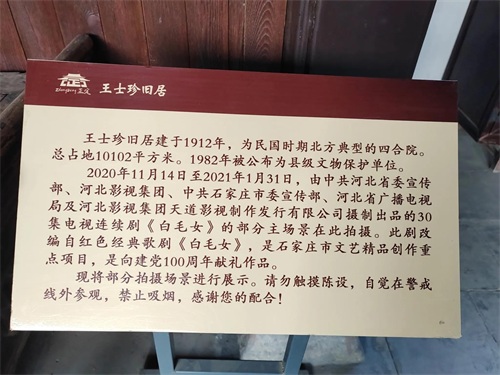 王士珍旧居
王士珍旧居建于1912年，为民国时期北方典型的四合院。
总占地10102平方米。1982年被公布为县级文物保护单位。
2020年11月14日至2021年1月31日，由中共河北省委宣传
部、河北影视集团、中共石家庄市委宣传部、河北省广播电视
局及河北影视集团天道影视制作发行有限公司摄制出品的30
集电视连续剧《白毛女》的部分主场景在此拍摄。此剧改
编自红色经典歌剧《白毛女》，是石家庄市文艺精品创作重
点项目，是向建党100周年献礼作品。
现将部分拍摄场景进行展示。请勿触摸陈设，自觉在警戒
线外参观，禁止吸烟，感谢您的配合！